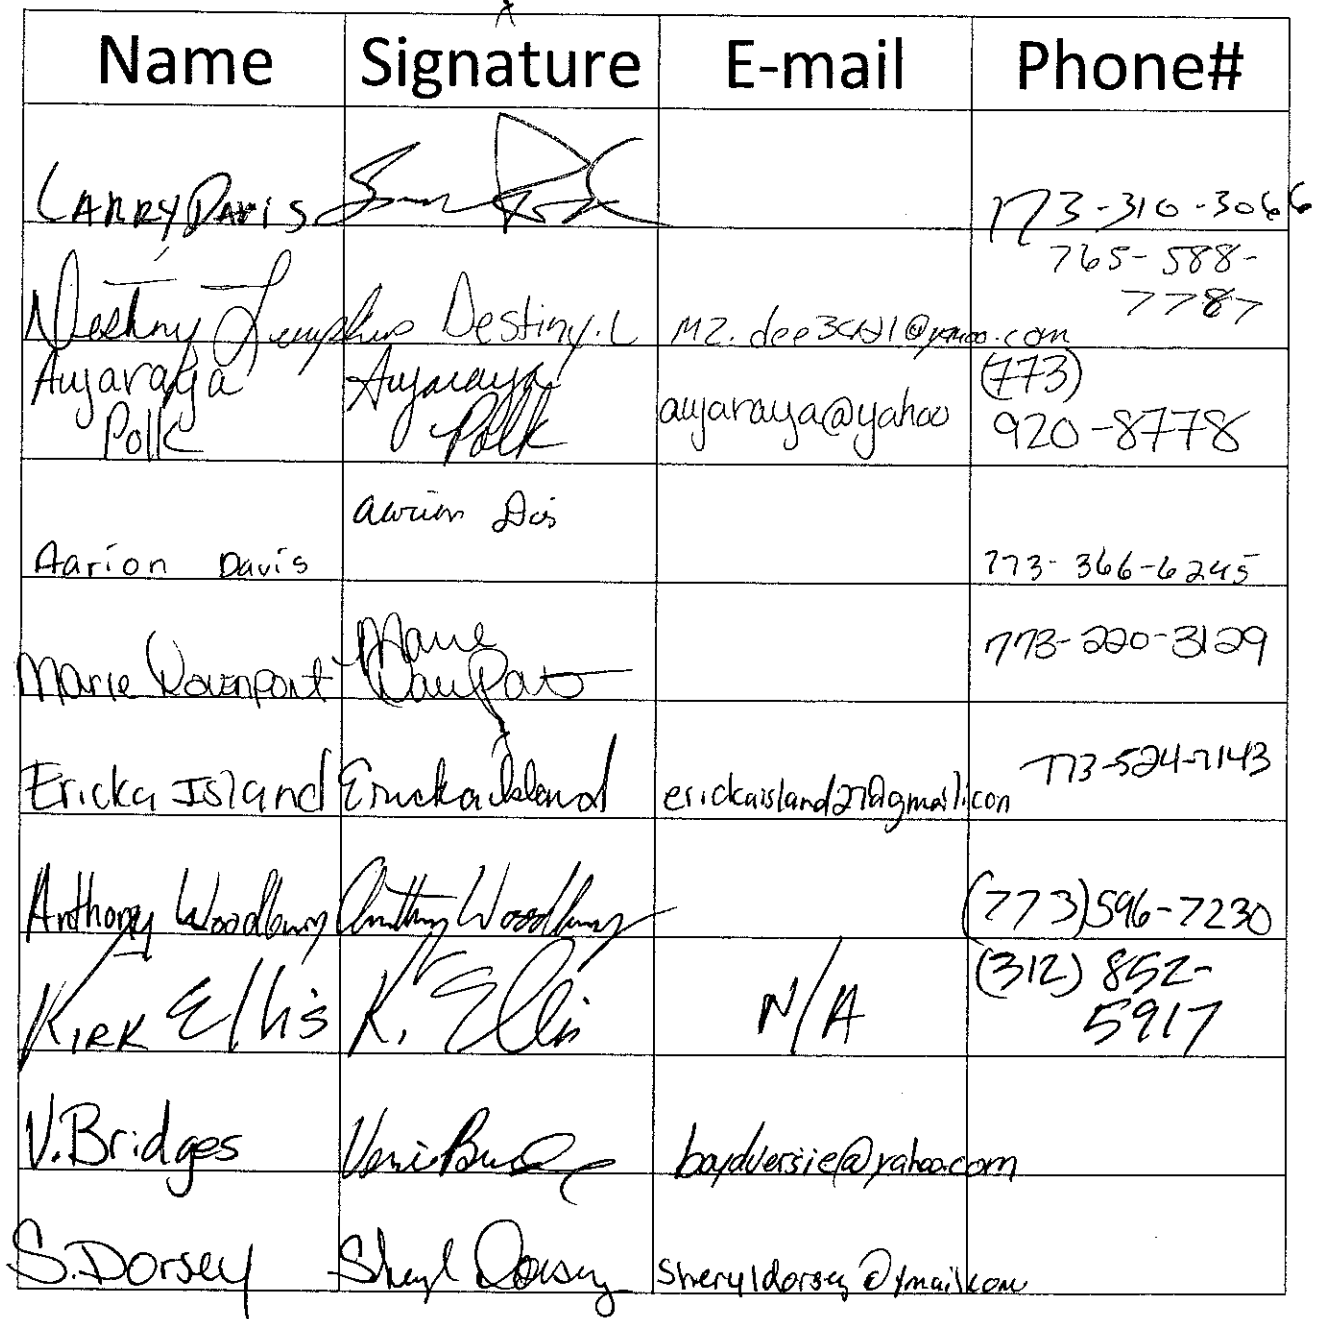 Name Signature E-mail Phone#
LARRY DAVIS 773-310-3066
Destiny Destiny.L 765-588-
7787
Aujaraya Aujaraya (773)
Polk Polk aujaraya@yahoo 920-8778
Aarion Davis 773-366-6245
Marie Davenport Marie 773-220-3129
Ericka Island Ericka Island erickaisland27@gmail.com 773-524-7143
Anthony Woodbury Anthony Woodbury (773)596-7230
Kirk Ellis K. Ellis N/A (312) 852-
5917
V.Bridges boydversie@yahoo.com
S.Dorsey Sheryl Dorsey sheryldorsey@ymail.com